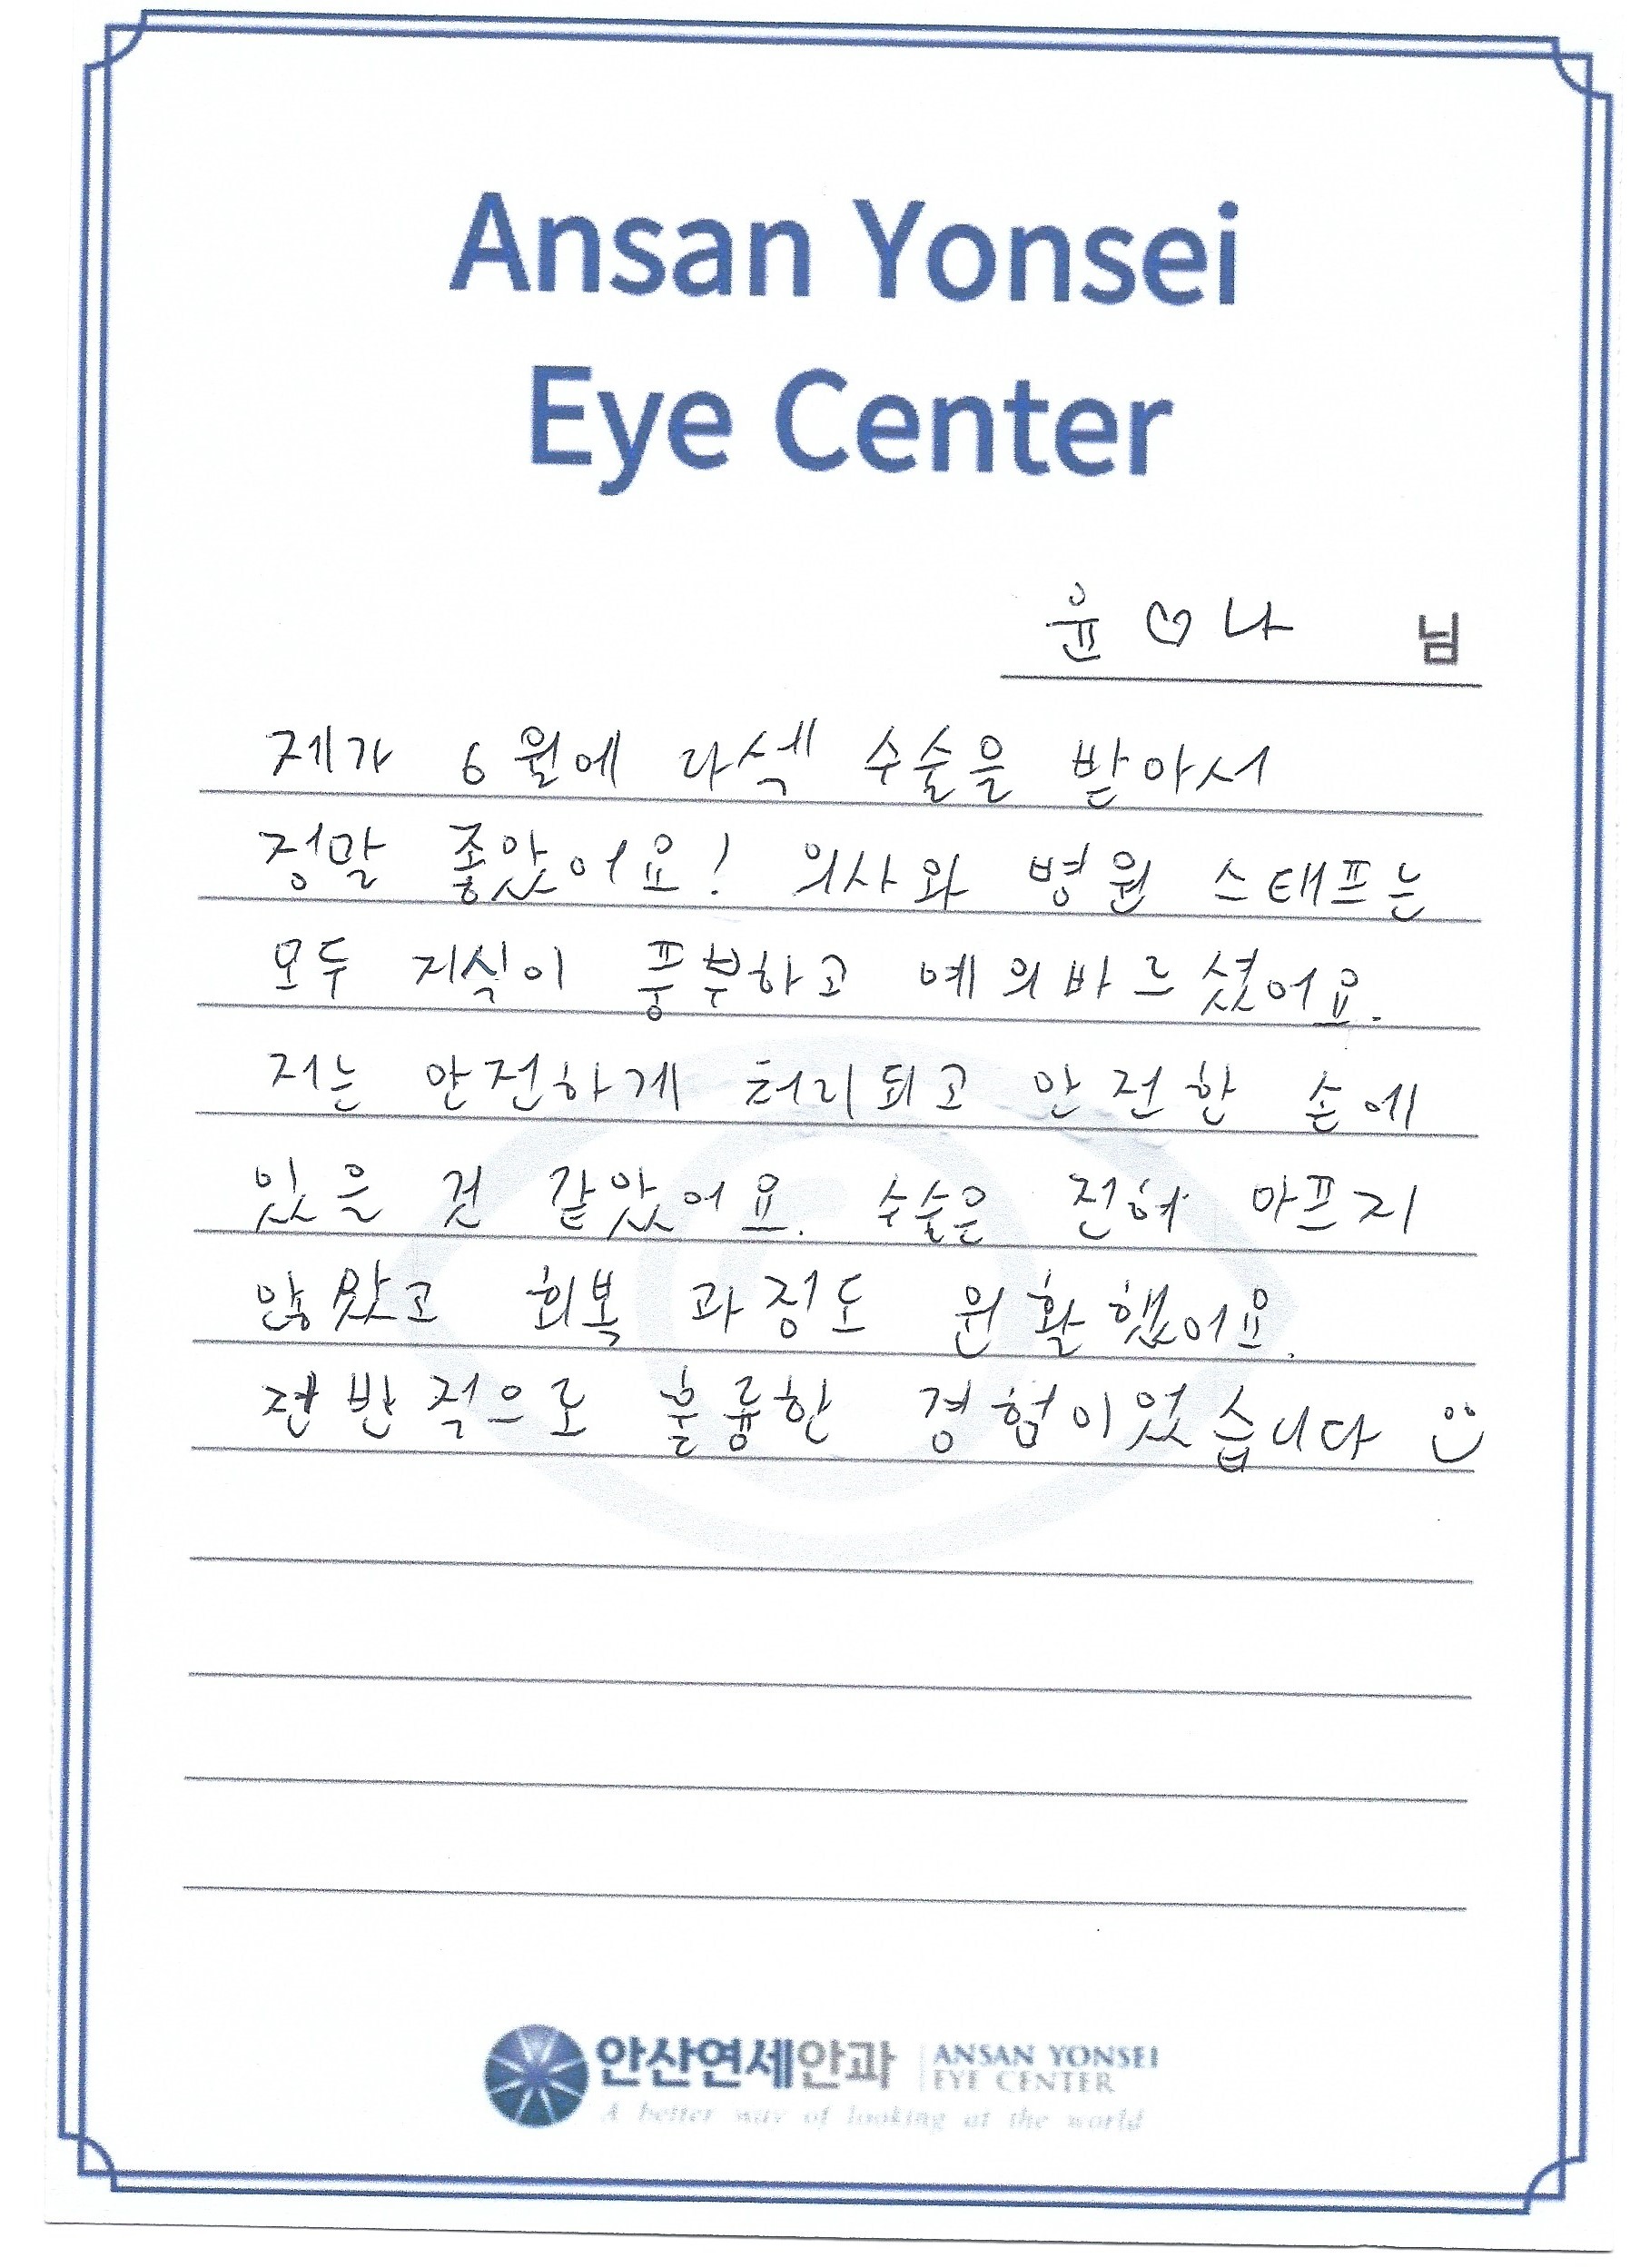 Ansan Yonsei
Eye Center
윤♡나 님
제가 6월에 라섹 수술을 받아서
정말 좋았어요! 의사와 병원 스태프는
모두 지식이 풍부하고 예의바르셨어요.
저는 안전하게 처리되고 안전한 손에
있은 것 같았어요. 수술은 전혀 아프지
않았고 회복 과정도 원활했어요.
전반적으로 훌륭한 경험이었습니다
안산연세안과 ANSAN YONSEI
EYE CENTER
A better way of looking at the world